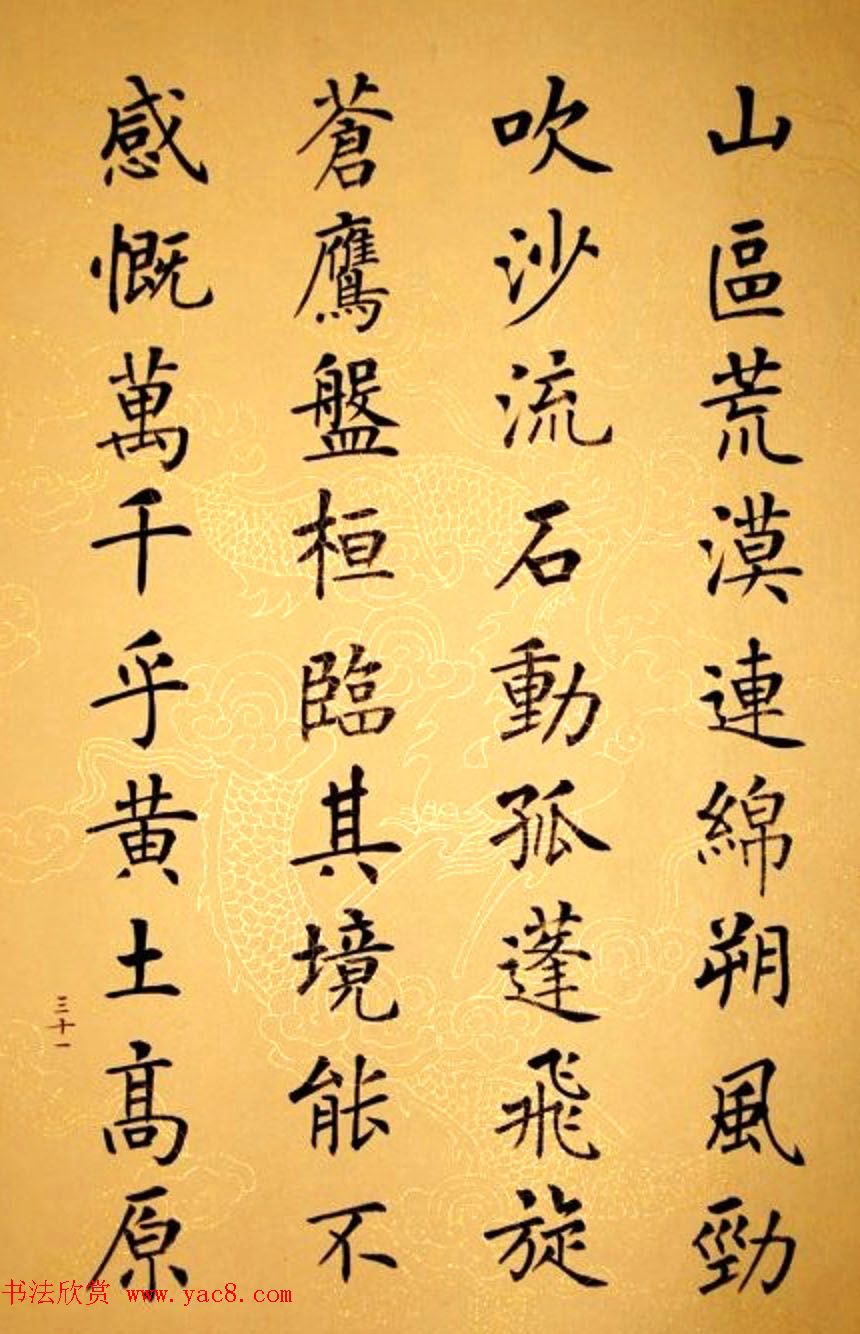 山區荒漠連綿朔風勁
吹沙流石動孤蓬飛旋
蒼鷹盤桓臨其境能不
感慨萬千乎黄土髙原
三十一
书法欣赏 www.yac8.com